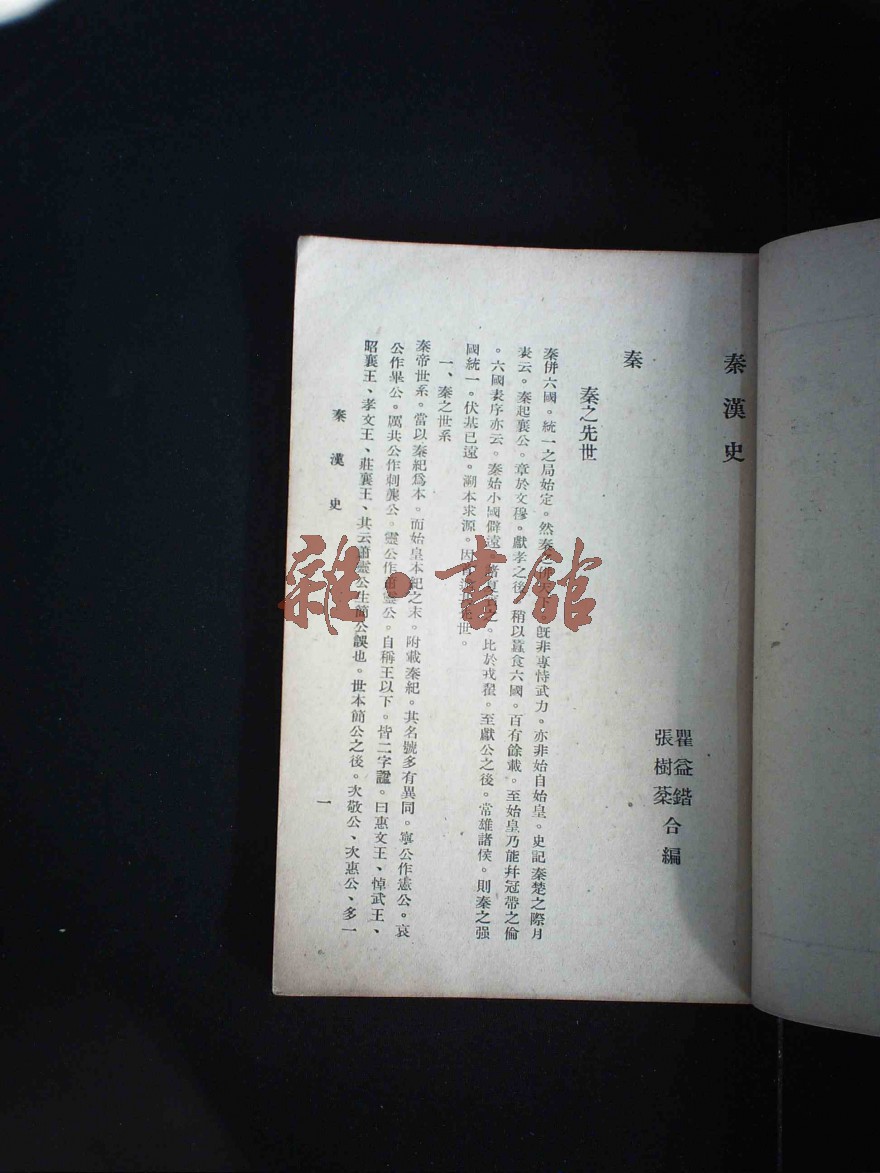 秦漢史
瞿益鍇
張樹棻
合編
秦
秦之先世
秦併六國。統一之局始定。然秦之 既非專恃武力。亦非始自始皇。史記秦楚之際月
表云。秦起襄公。章於文穆。獻孝之後。稍以蠶食六國。百有餘載。至始皇乃能幷冠帶之倫
。六國表序亦云。秦始小國僻遠。諸夏 之。比於戎翟。至獻公之後。常雄諸侯。則秦之强
國統一。伏基已遠。溯本求源。因 世。
一、秦之世系
秦帝世系。當以秦紀爲本。而始皇本紀之末。附載秦紀。其名號多有異同。寧公作憲公。哀
公作畢公。厲共公作剌龔公。靈公作肅靈公。自稱王以下。皆二字諡。曰惠文王、悼武王、
昭襄王、孝文王、莊襄王、其云肅靈公生簡公誤也。世本簡公之後。次敬公、次惠公、多一
秦漢史
一
雜·書館